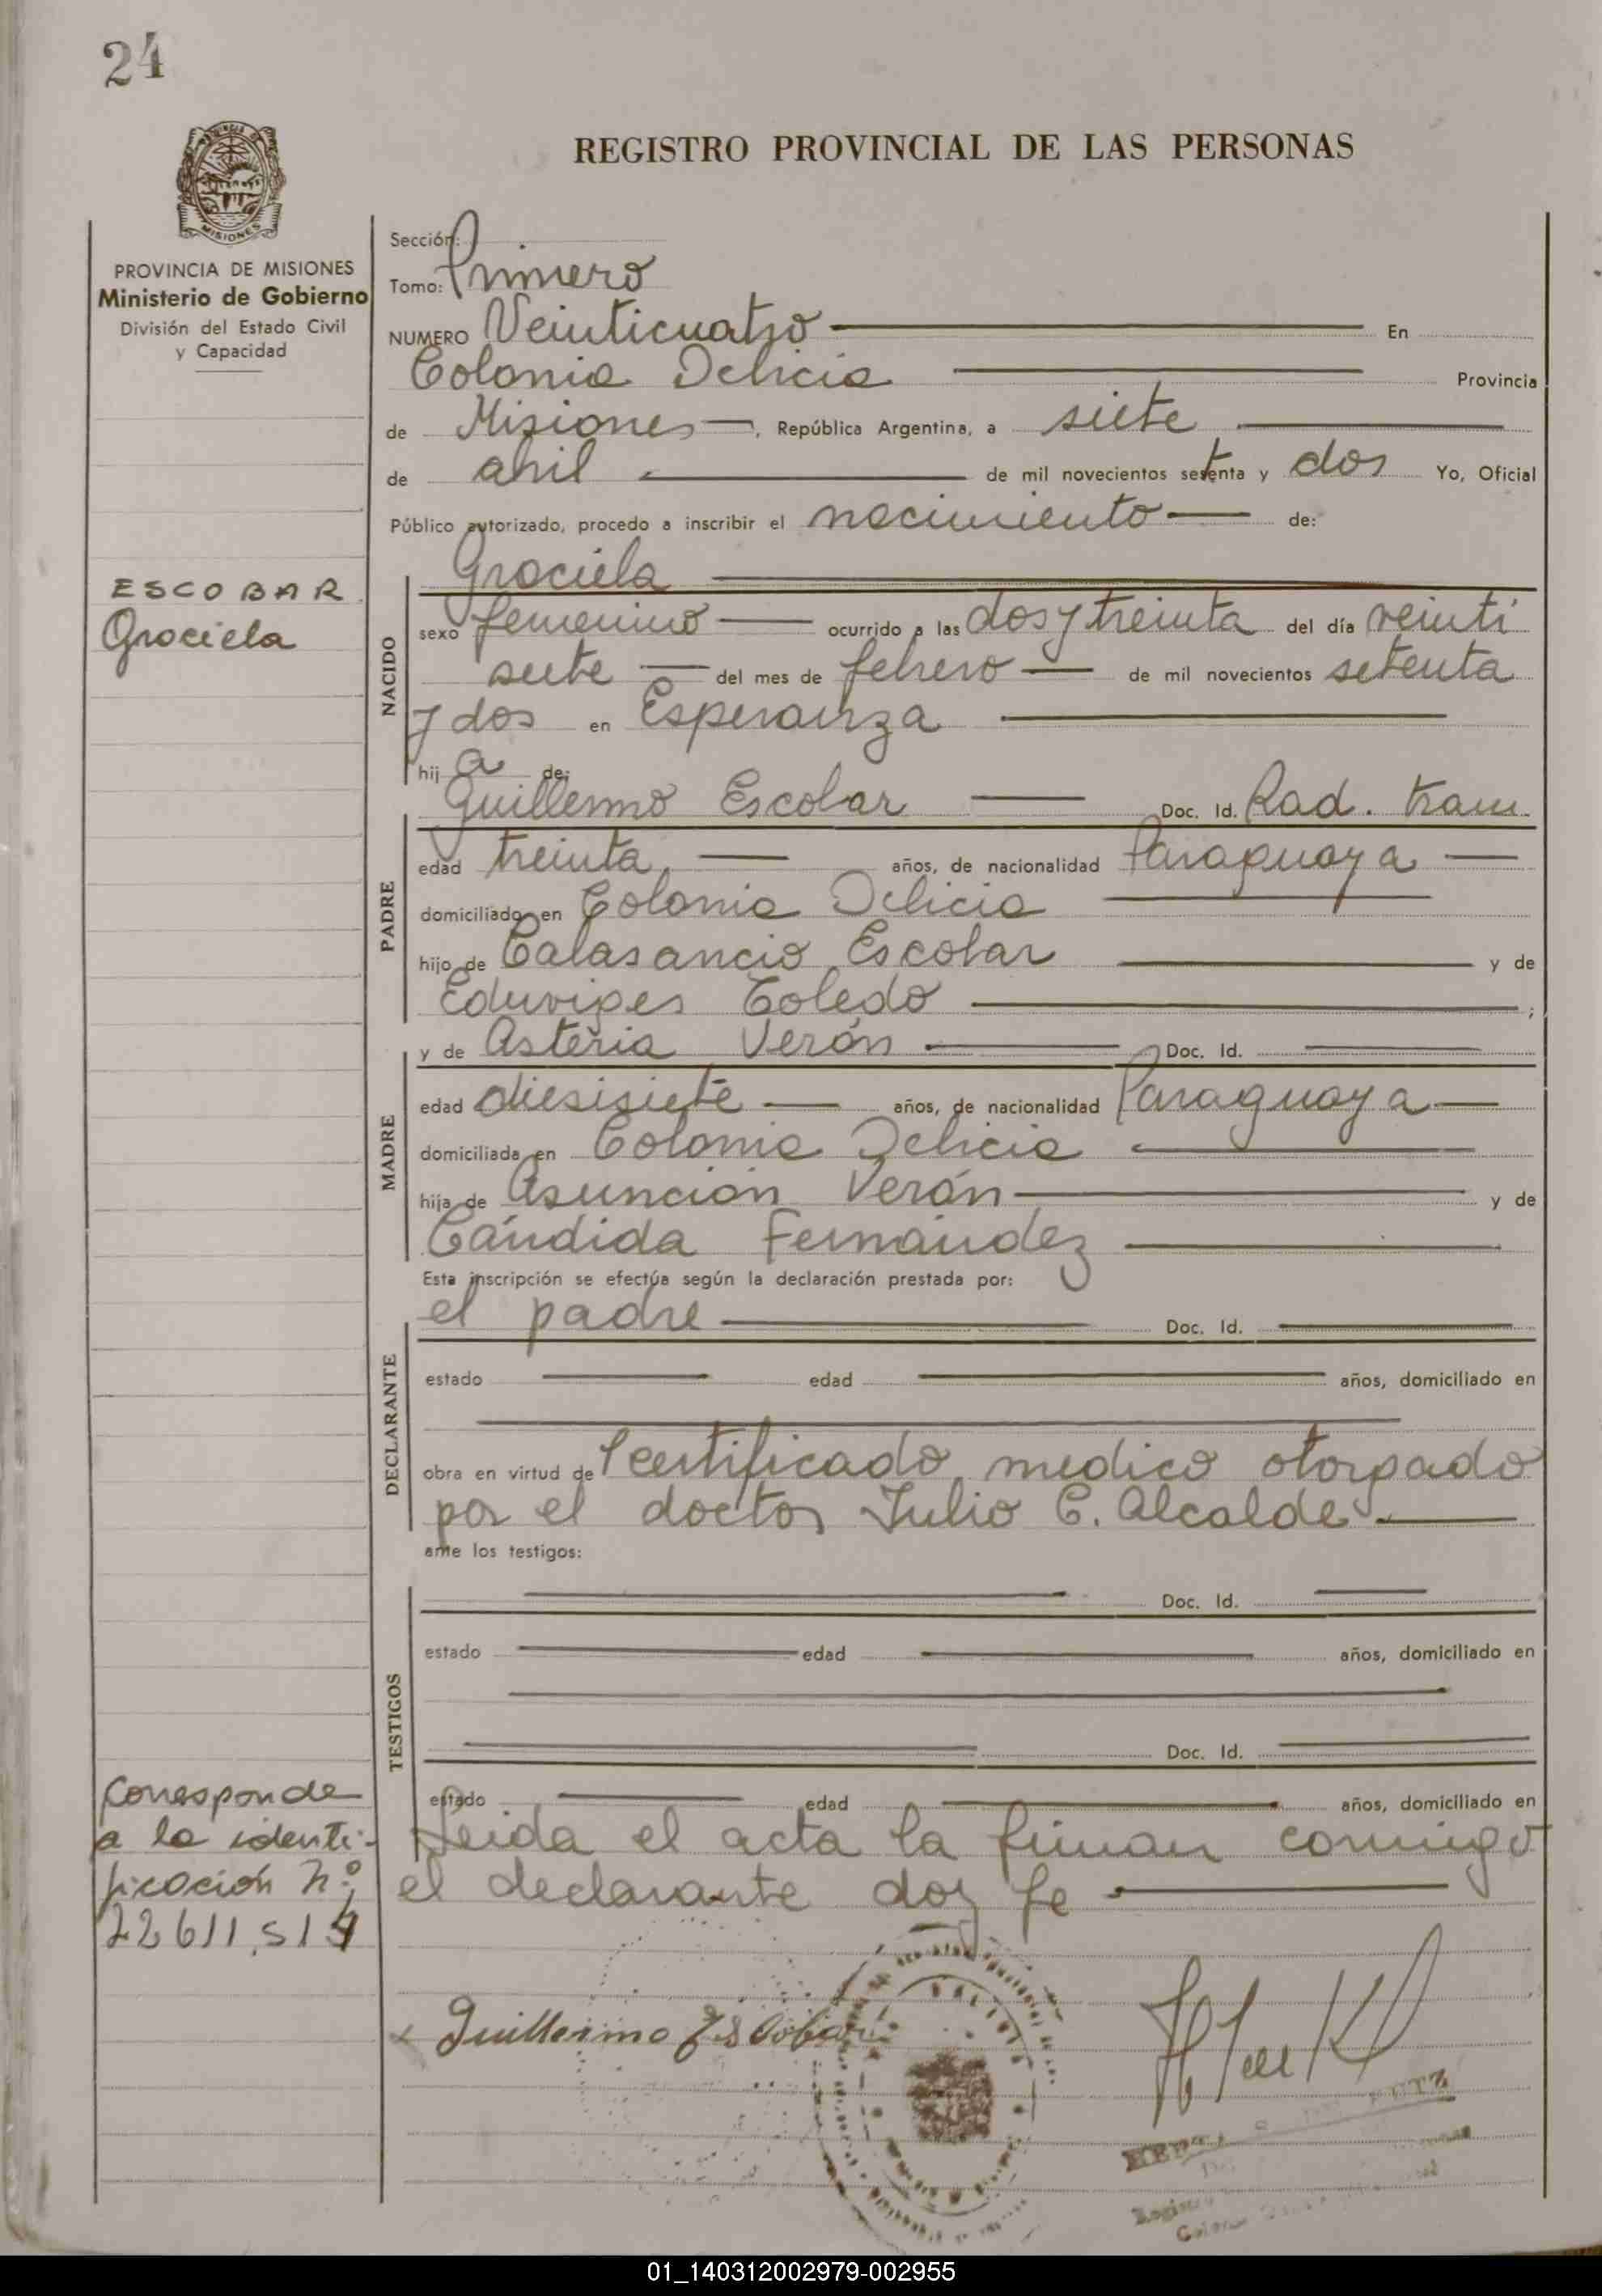 24
REGISTRO PROVINCIAL DE LAS PERSONAS
MISIONES
PROVINCIA DE MISIONES
Ministerio de Gobierno
División del Estado Civil
y Capacidad
ESCOBAR
Graciela
Corresponde
a la identi-
ficación Nº
Sección:
Tomo: Primero
NUMERO Veinticuatro En
Colonia Delicia Provincia
de Misiones, República Argentina, a siete
de abril de mil novecientos setenta y dos Yo, Oficial
Público autorizado, procedo a inscribir el nacimiento de:
NACIDO
Graciela
sexo femenino ocurrido a las dos y treinta del día veinti
siete del mes de febrero de mil novecientos setenta
y dos en Esperanza
hij a de:
PADRE
Guillermo Escobar Doc. Id. Rad. tram.
edad treinta años, de nacionalidad Paraguaya
domiciliado en Colonia Delicia
hijo de Calasancio Escobar y de
Eduviges Toledo ;
MADRE
y de Asteria Verón Doc. Id.
edad diesisiete años, de nacionalidad Paraguaya
domiciliada en Colonia Delicia
hija de Asunción Verón y de
Cándida Fernández
Esta inscripción se efectúa según la declaración prestada por:
DECLARANTE
el padre Doc. Id.
estado edad años, domiciliado en
obra en virtud de certificado medico otorgado
por el doctor Julio C. Alcalde
ante los testigos:
TESTIGOS
Doc. Id.
estado edad años, domiciliado en
Doc. Id.
estado edad años, domiciliado en
Leida el acta la firman conmigo
el declarante doy fe
Guillermo Escobar
01_140312002979-002955